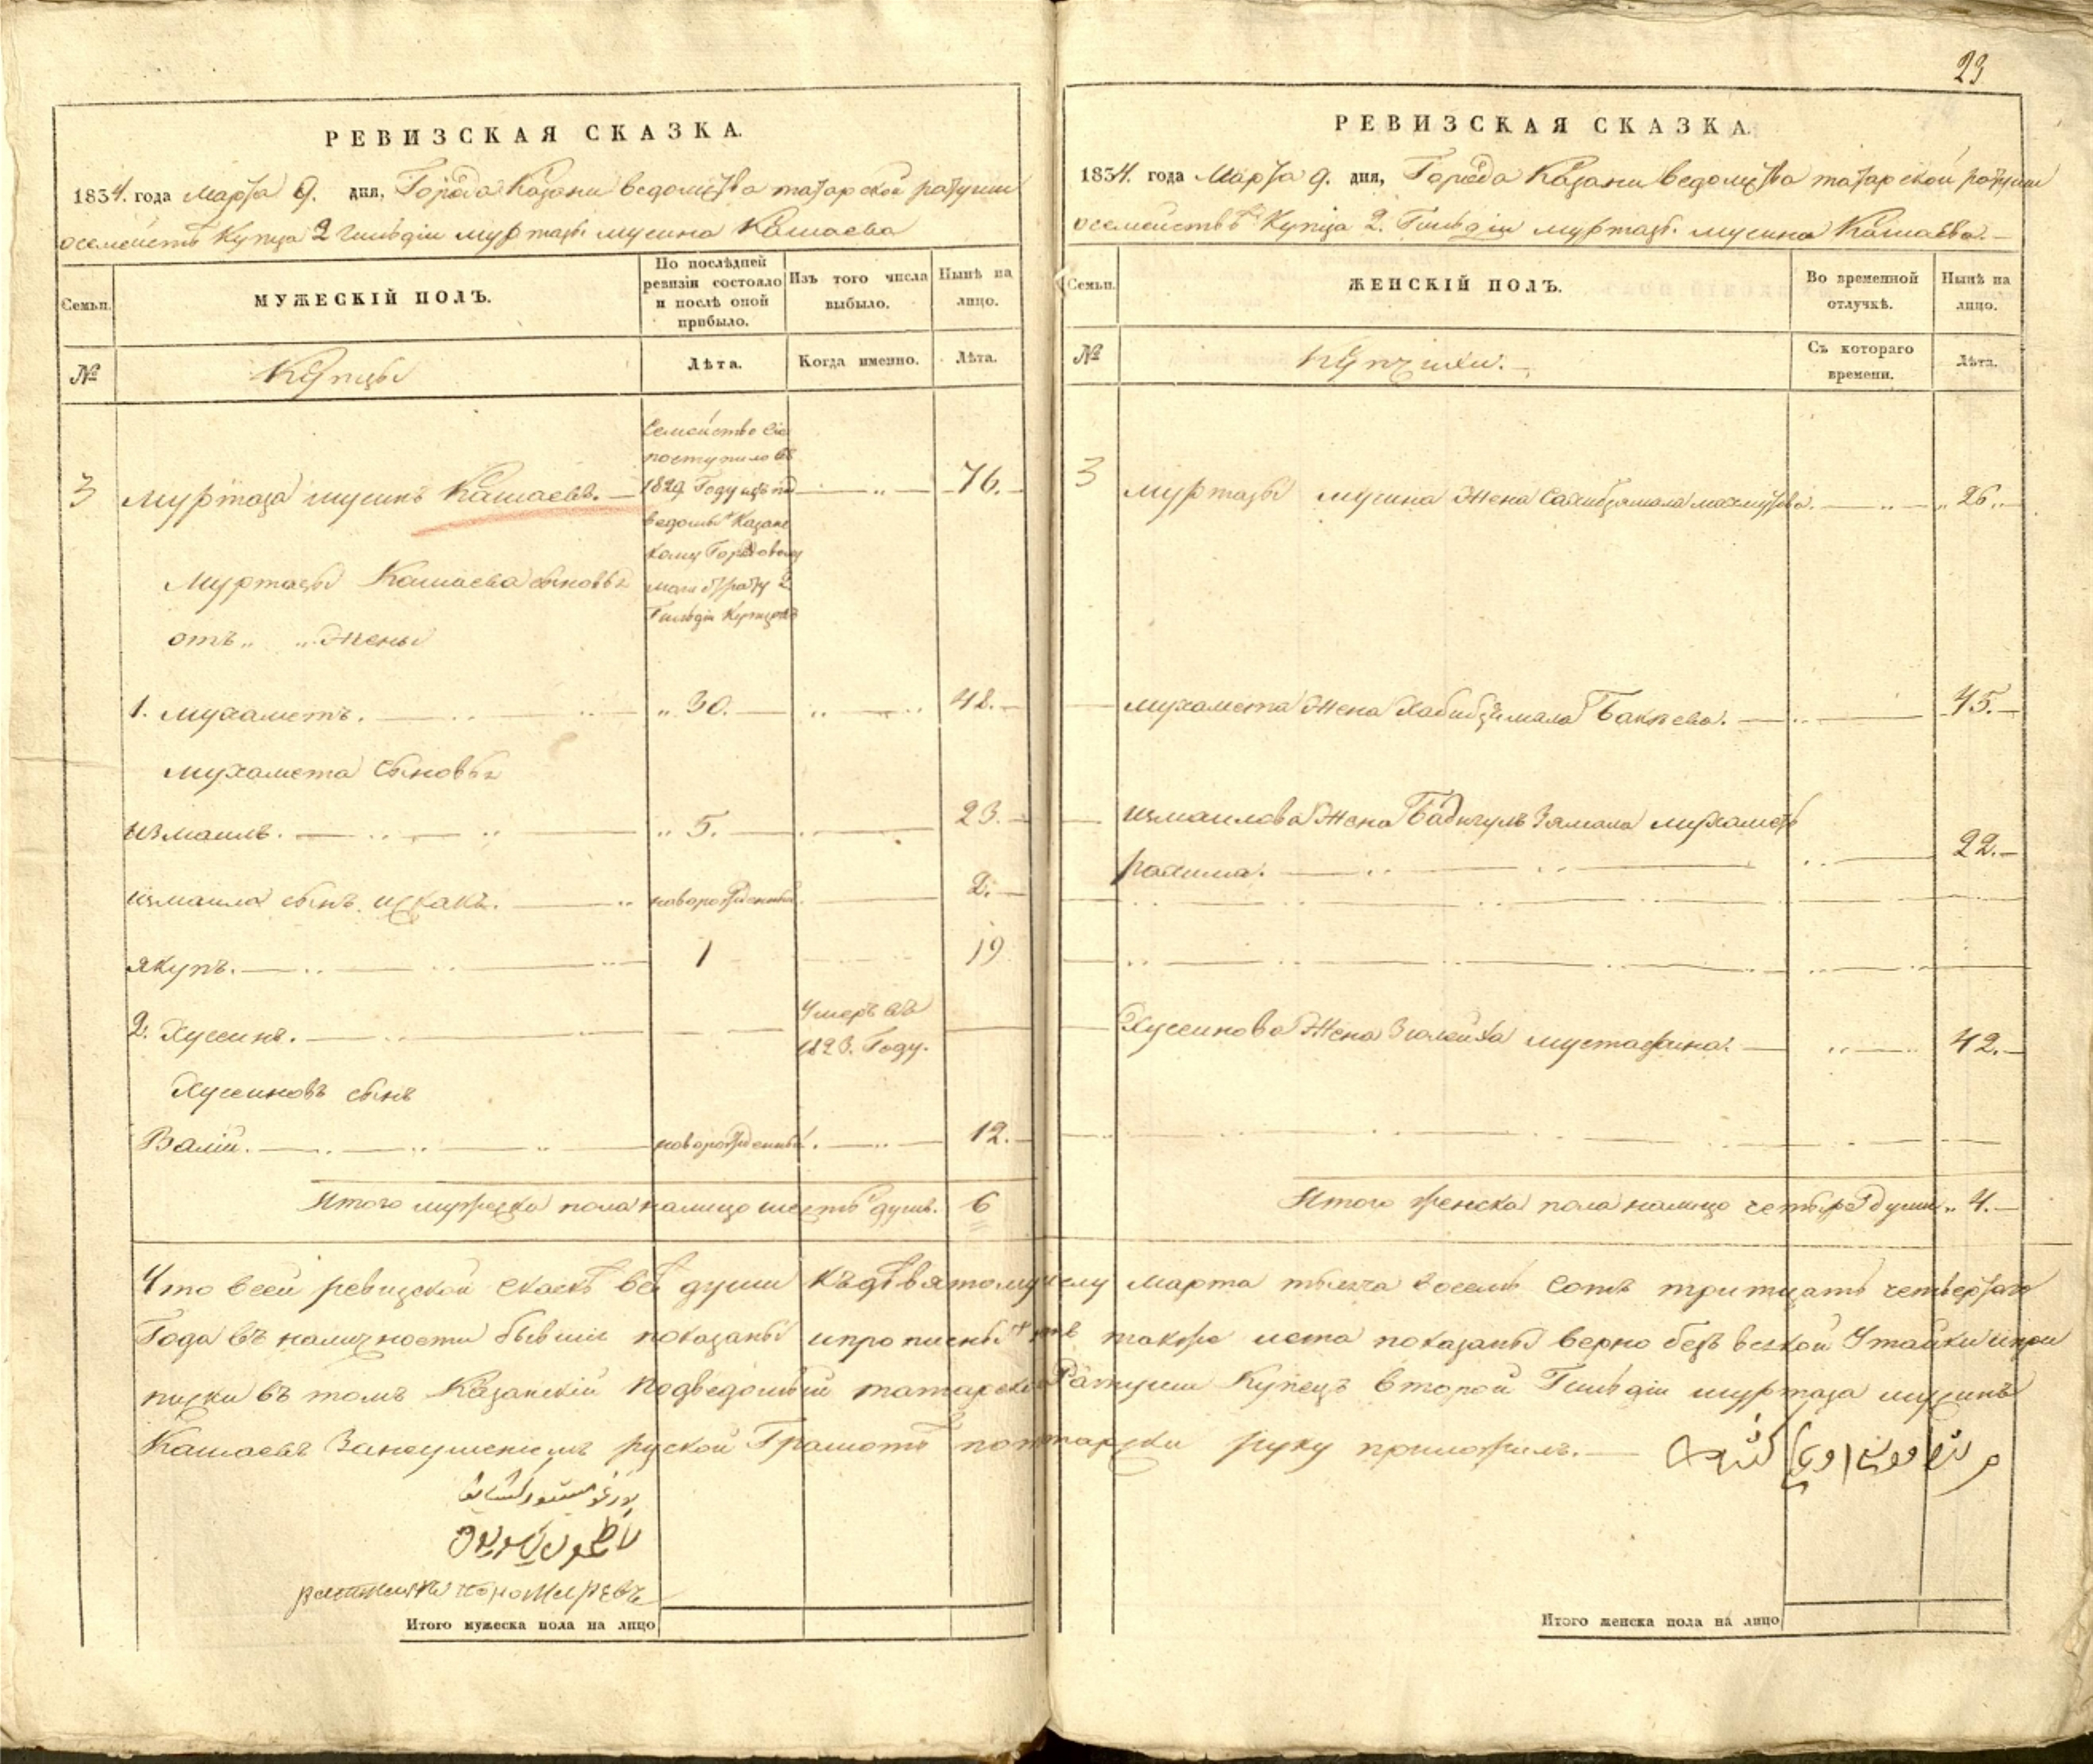 РЕВИЗСКАЯ СКАЗКА.
1834. года Марта 9. дня, Города Казани ведомства татарской ратуши
о семействѣ Купца 2 гильдіи муртазы мусина Кашаева
Семьи.
МУЖЕСКІЙ ПОЛЪ.
По послѣдней ревизіи состояло и послѣ оной прибыло.
Изъ того числа выбыло.
Нынѣ на лицо.
№
Купцы
Лѣта.
Когда именно.
Лѣта.
Семейство сіе
поступило въ
1829 Году изъ под
ведомых Казанс
кому Городовому
магистрату 2
Гильдіи Купцовъ
3 муртаза мусинъ Кашаевъ. 76.
Муртазы Кашаева сыновья
отъ " " Жены
1. мухаметъ. " 30. 48.
мухамета сыновья
измаилъ. " 5. 23.
измаила сынъ исхакъ. новорожденный 2.
якупъ. 1 19
2. Хусеинъ. Умеръ въ
1823. Году.
Хусеиновъ сынъ
Валій. новорожденный. 12.
Итого мужеска пола налицо шесть душъ. 6
23
РЕВИЗСКАЯ СКАЗКА.
1834. года Марта 9. дня, Города Казани ведомства татарской ратуши
о семействѣ Купца 2. Гильдіи муртазы мусина Кашаева.
Семьи.
ЖЕНСКІЙ ПОЛЪ.
Во временной отлучкѣ.
Нынѣ на лицо.
№
купчихи.
Съ котораго времени.
Лѣта.
3 муртазы мусина Жена Сахибзямала махмутова. " 26.
мухамета Жена Хабибзямала Бакѣева. 45.
измаилова Жена Бадигулъ Зямала мухаметь
рахима. 22.
Хусеинова Жена Зюлейха мустафина. 42.
Итого женска пола налицо четыре души " 4.
Что въ сей ревизской скаскѣ всѣ души къ девятому числу марта тысяча восемь сотъ тритцать четвертаго
Года въ наличности бывшіе показаны и прописных нѣтъ также лета показаны верно безъ всякой Утайки и при
писки въ томъ Казанскій подведомый татарской Ратуши Купецъ второй Гильдіи муртаза мусинъ
Кашаевъ Занеумениемъ руской Грамоты потатарски руку приложилъ.
Итого мужеска пола на лицо
Итого женска пола на лицо